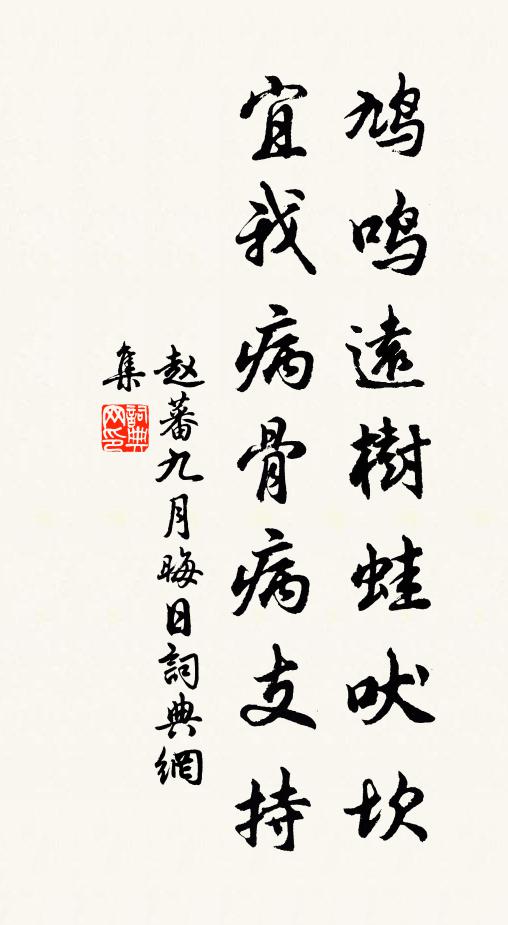 鳩鳴遠樹蛙吠坎
宜我病骨病支持
赵蕃九月晦日詞典網
集
詞典
网印